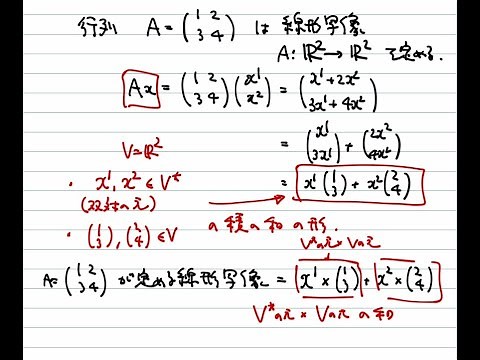 行列 A = (1 2 3 4) は 線形写像
A: ℝ² → ℝ² を定める.
Ax = (1 2 3 4)(x¹ x²) = (x¹+2x² 3x¹+4x²)
= (x¹ 3x¹) + (2x² 4x²)
V=ℝ²
・ x¹, x² ∈ V*
= x¹(1 3) + x²(2 4)
(双対の元)
の積の和の形.
・ (1 3), (2 4) ∈ V
V*の元 × Vの元
A = (1 2 3 4) が定める線形写像 = x¹ × (1 3) + x² × (2 4)
V*の元 × Vの元 の和